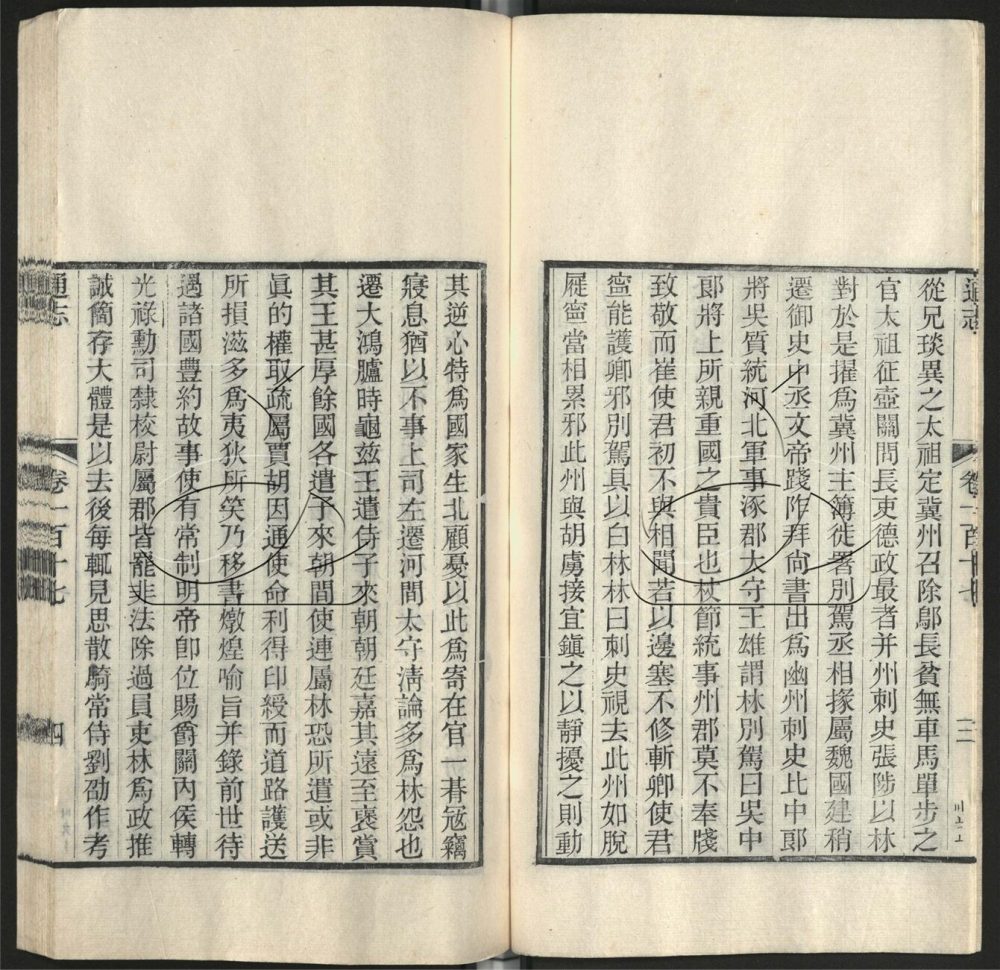 通志
卷一百十七
三
從兄琰異之太祖定冀州召除鄔長貧無車馬單步之
官太祖征壺關問長吏德政最者并州刺史張陟以林
對於是擢爲冀州主簿徙署別駕丞相掾屬魏國建稍
遷御史中丞文帝踐阼拜尚書出爲幽州刺史比中郎
將吳質統河北軍事涿郡太守王雄謂林別駕曰吳中
郎將上所親重國之貴臣也杖節統事州郡莫不奉牋
致敬而崔使君初不與相聞若以邊塞不修斬卿使君
寧能護卿邪別駕具以白林林曰刺史視去此州如脫
屣寧當相累邪此州與胡虜接宜鎮之以靜擾之則動
其逆心特爲國家生北顧憂以此爲寄在官一朞寇竊
寢息猶以不事上司左遷河間太守清論多爲林怨也
遷大鴻臚時龜茲王遣侍子來朝朝廷嘉其遠至褒賞
其王甚厚餘國各遣子來朝間使連屬林恐所遣或非
眞的權取疏屬賈胡因通使命利得印綬而道路護送
所損滋多爲夷狄所笑乃移書燉煌喻旨并錄前世待
遇諸國豐約故事使有常制明帝即位賜爵關內侯轉
光祿勳司隸校尉屬郡皆罷非法除過員吏林爲政推
誠簡存大體是以去後每輒見思散騎常侍劉劭作考
通志
卷一百十七
四